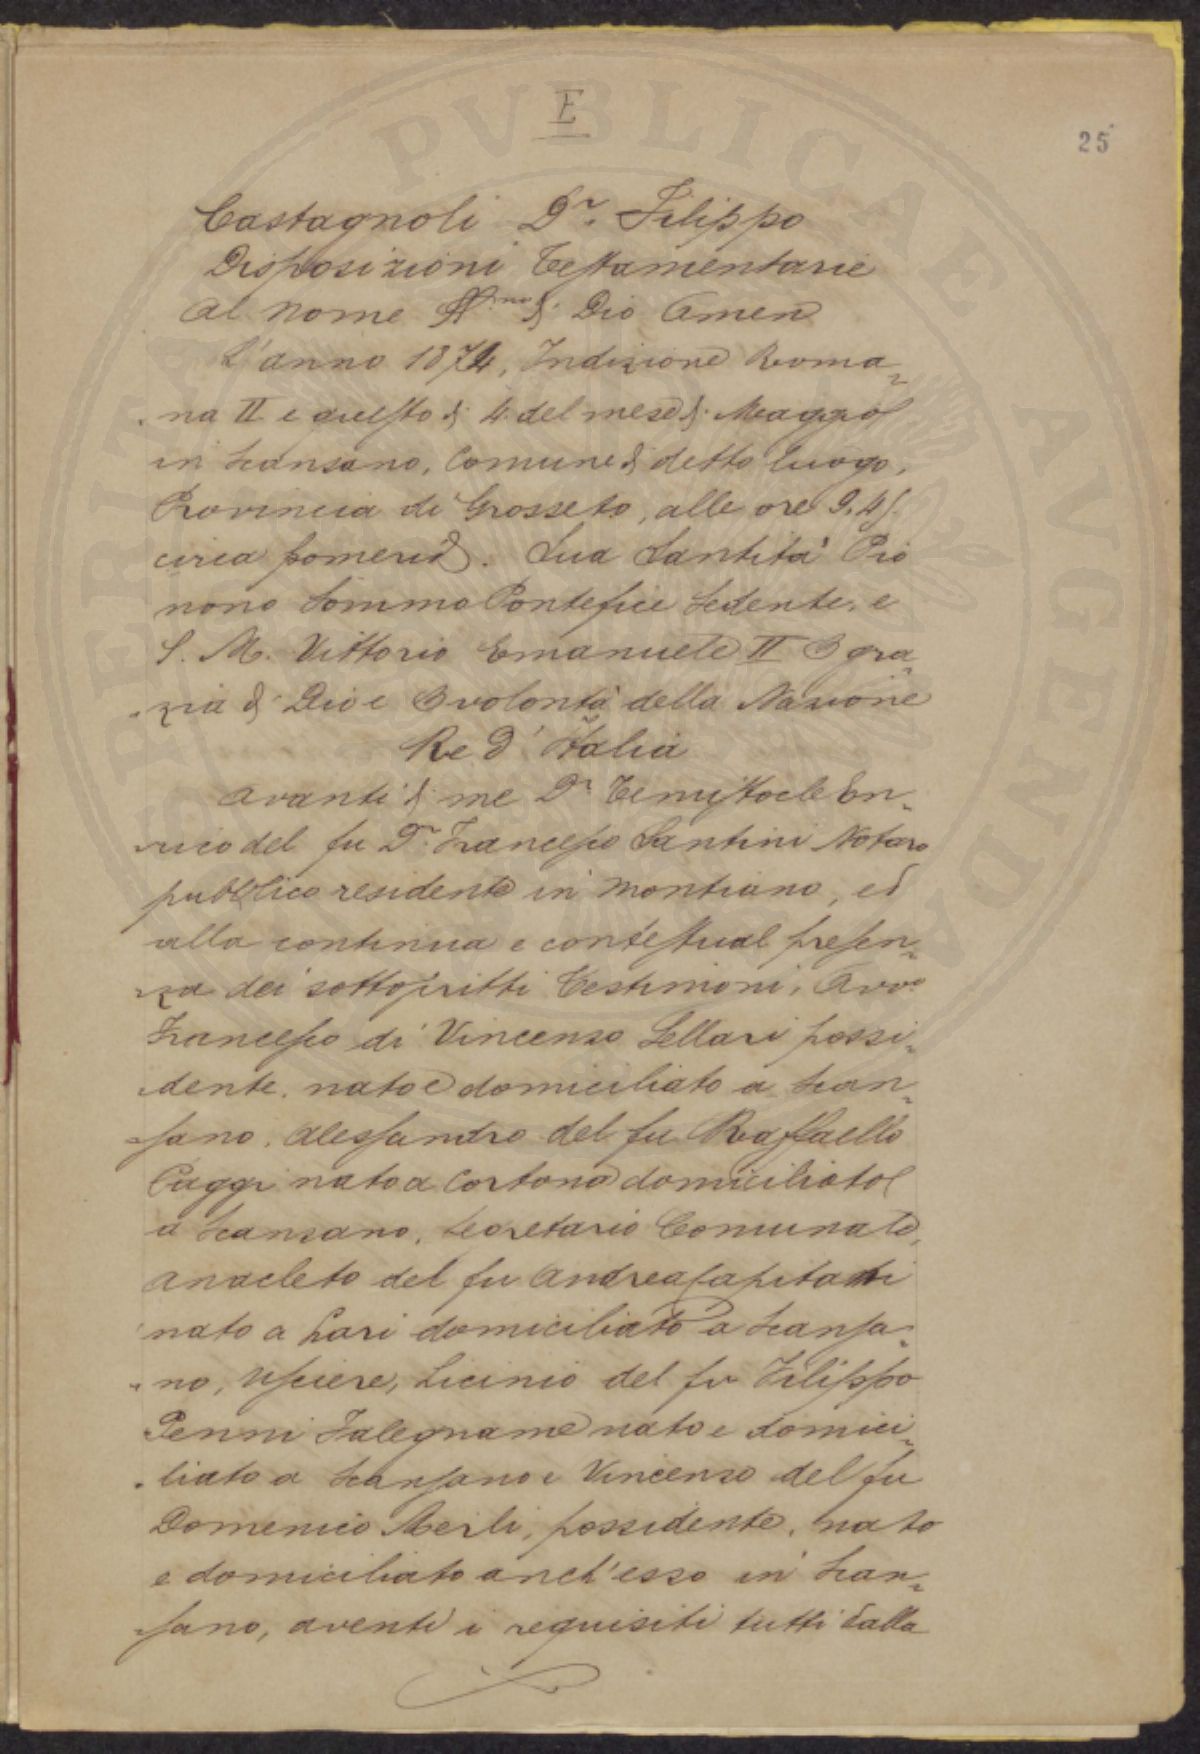 E
25
Castagnoli Dr. Filippo
Disposizioni Testamentarie
Al Nome SS.mo di Dio Amen
L'anno 1874, Indizione Roma-
-na II e questo dì 4 del mese di Maggio
in Scansano, Comune di detto luogo,
Provincia di Grosseto, alle ore 9.45.
circa pomerid. Sua Santità Pio
nono Sommo Pontefice Sedente, e
S. M. Vittorio Emanuele II P gra-
-zia di Dio e P volontà della Nazione
Re d'Italia
Avanti di me Dr. Temistocle En-
-rico del fu Dr. Francesco Santini Notaro
pubblico residente in Montiano, ed
alla continua e contestual presen-
-za dei sottoscritti Testimoni, Avvo
Francesco di Vincenzo Sellari possi-
-dente, nato e domiciliato a Scan-
-sano, Alessandro del fu Raffaello
Paggi nato a Cortona domiciliato
a Scansano, Secretario Comunale,
Anacleto del fu Andrea Capitani
nato a Lari domiciliato a Scansa-
-no, Usciere, Licinio del fu Filippo
Penni Falegname nato e domici-
-liato a Scansano e Vincenzo del fu
Domenico Merli, possidente, nato
e domiciliato anch'esso in Scan-
-sano, aventi i requisiti tutti dalla
PERITATE PVBLICAE AVGENDA